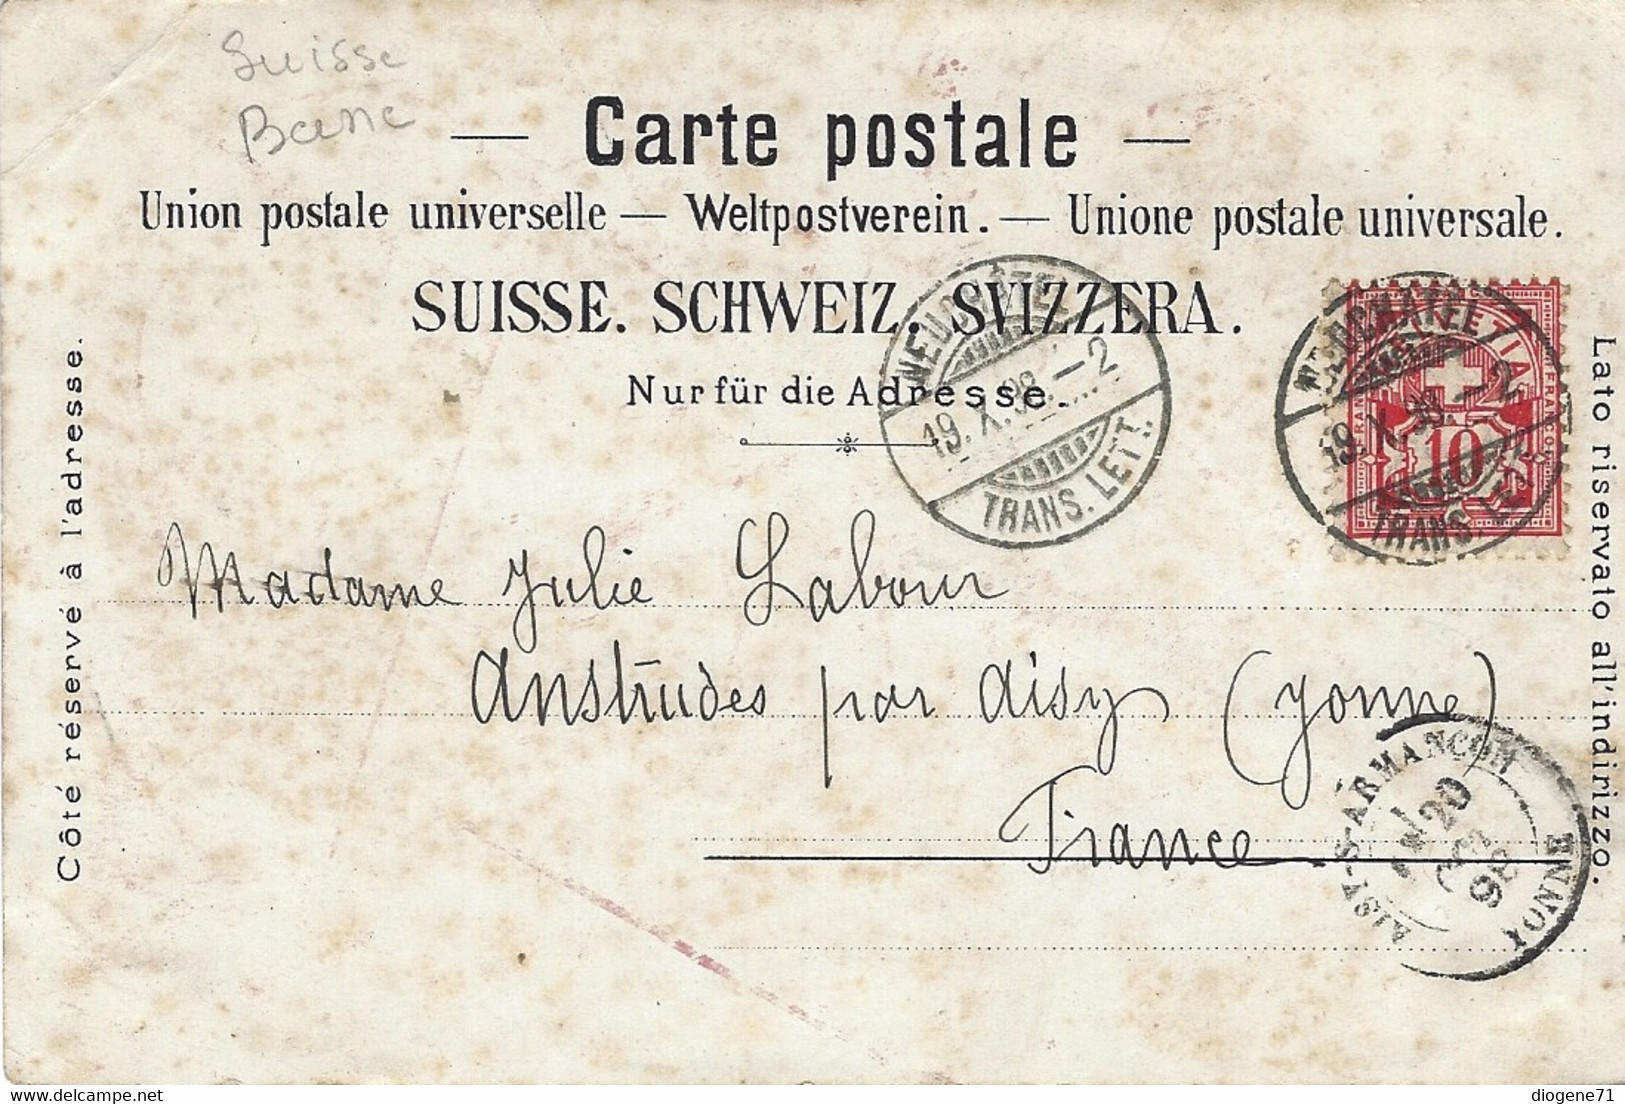 Suisse
Berne
— Carte postale —
Union postale universelle — Weltpostverein. — Unione postale universale.
SUISSE. SCHWEIZ. SVIZZERA.
Nur für die Adresse.
NEUCHÂTEL
19. X. 98. – 2
TRANS. LETT.
NEUCHÂTEL
19. X. 98. – 2
TRANS. LETT.
HELVETIA
FRANCO
10
Côté réservé à l'adresse.
Lato riservato all'indirizzo.
Madame Julie Labour
Anstrudes par Aisy (Yonne)
France
AISY-S-ARMANCON
20
OCT
98
YONNE
diogene71